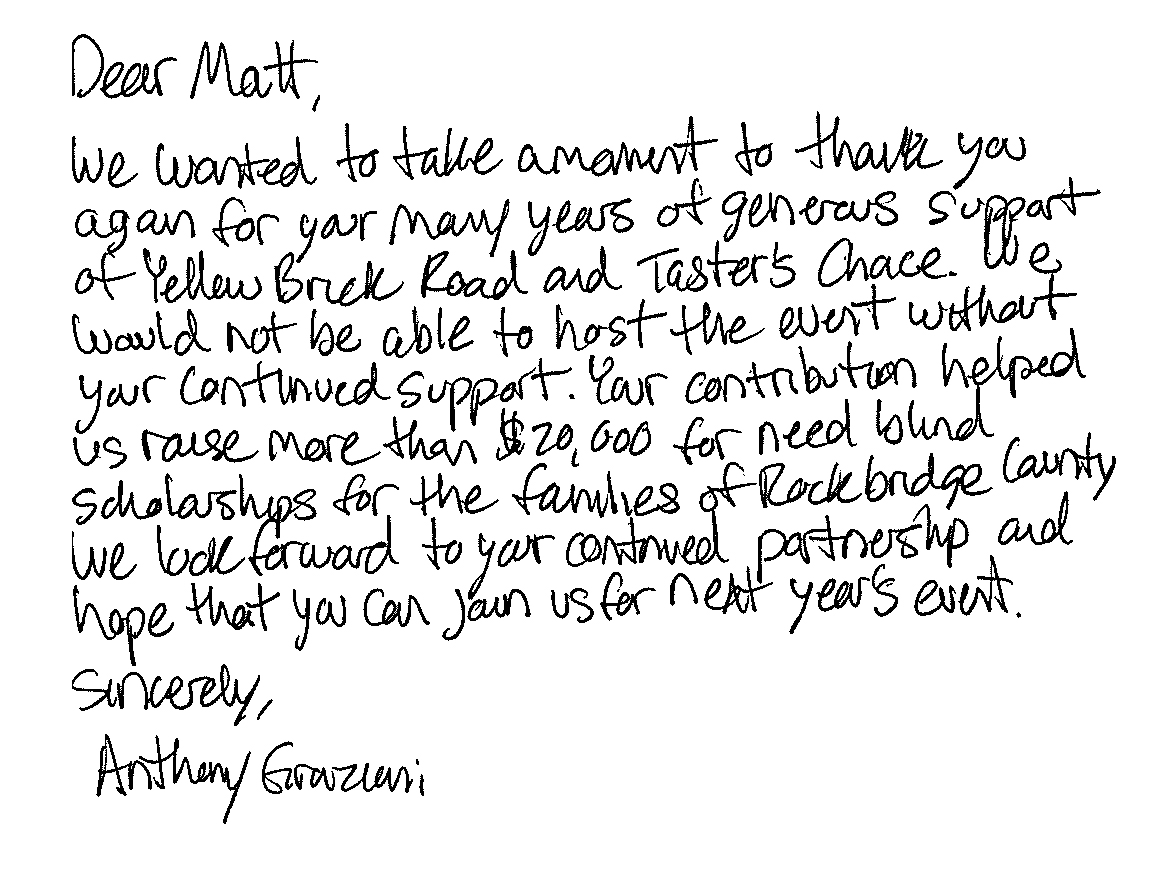 Dear Matt,
We wanted to take a moment to thank you
again for your many years of generous support
of Yellow Brick Road and Taster's Chace. We
would not be able to host the event without
your continued support. Your contribution helped
us raise more than $20,000 for need blind
scholarships for the families of Rockbridge County
We look forward to your continued partnership and
hope that you can join us for next year's event.
Sincerely,
Anthony Graziani